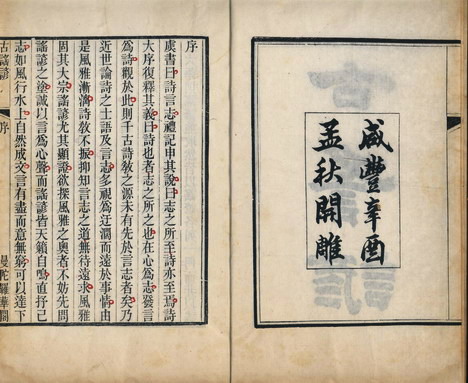 咸豐辛酉
孟秋開雕
序
虞書曰詩言志禮記申其說曰志之所至詩亦至焉詩
大序復釋其義曰詩也者志之所之也在心為志發言
為詩觀於此則千古詩敎之源未有先於言志者矣乃
近世論詩之士語及言志多視為迂濶而遠於事情由
是風雅漸漓詩敎不振抑知言志之道無待遠求風雅
固其大宗謠諺尤其顯證欲探風雅之奧者不妨先問
謠諺之塗誠以言為心聲而謠諺皆天籟自鳴直抒己
志如風行水上自然成文言有盡而意無窮可以達下
古謠諺
序
曼陀羅華閣